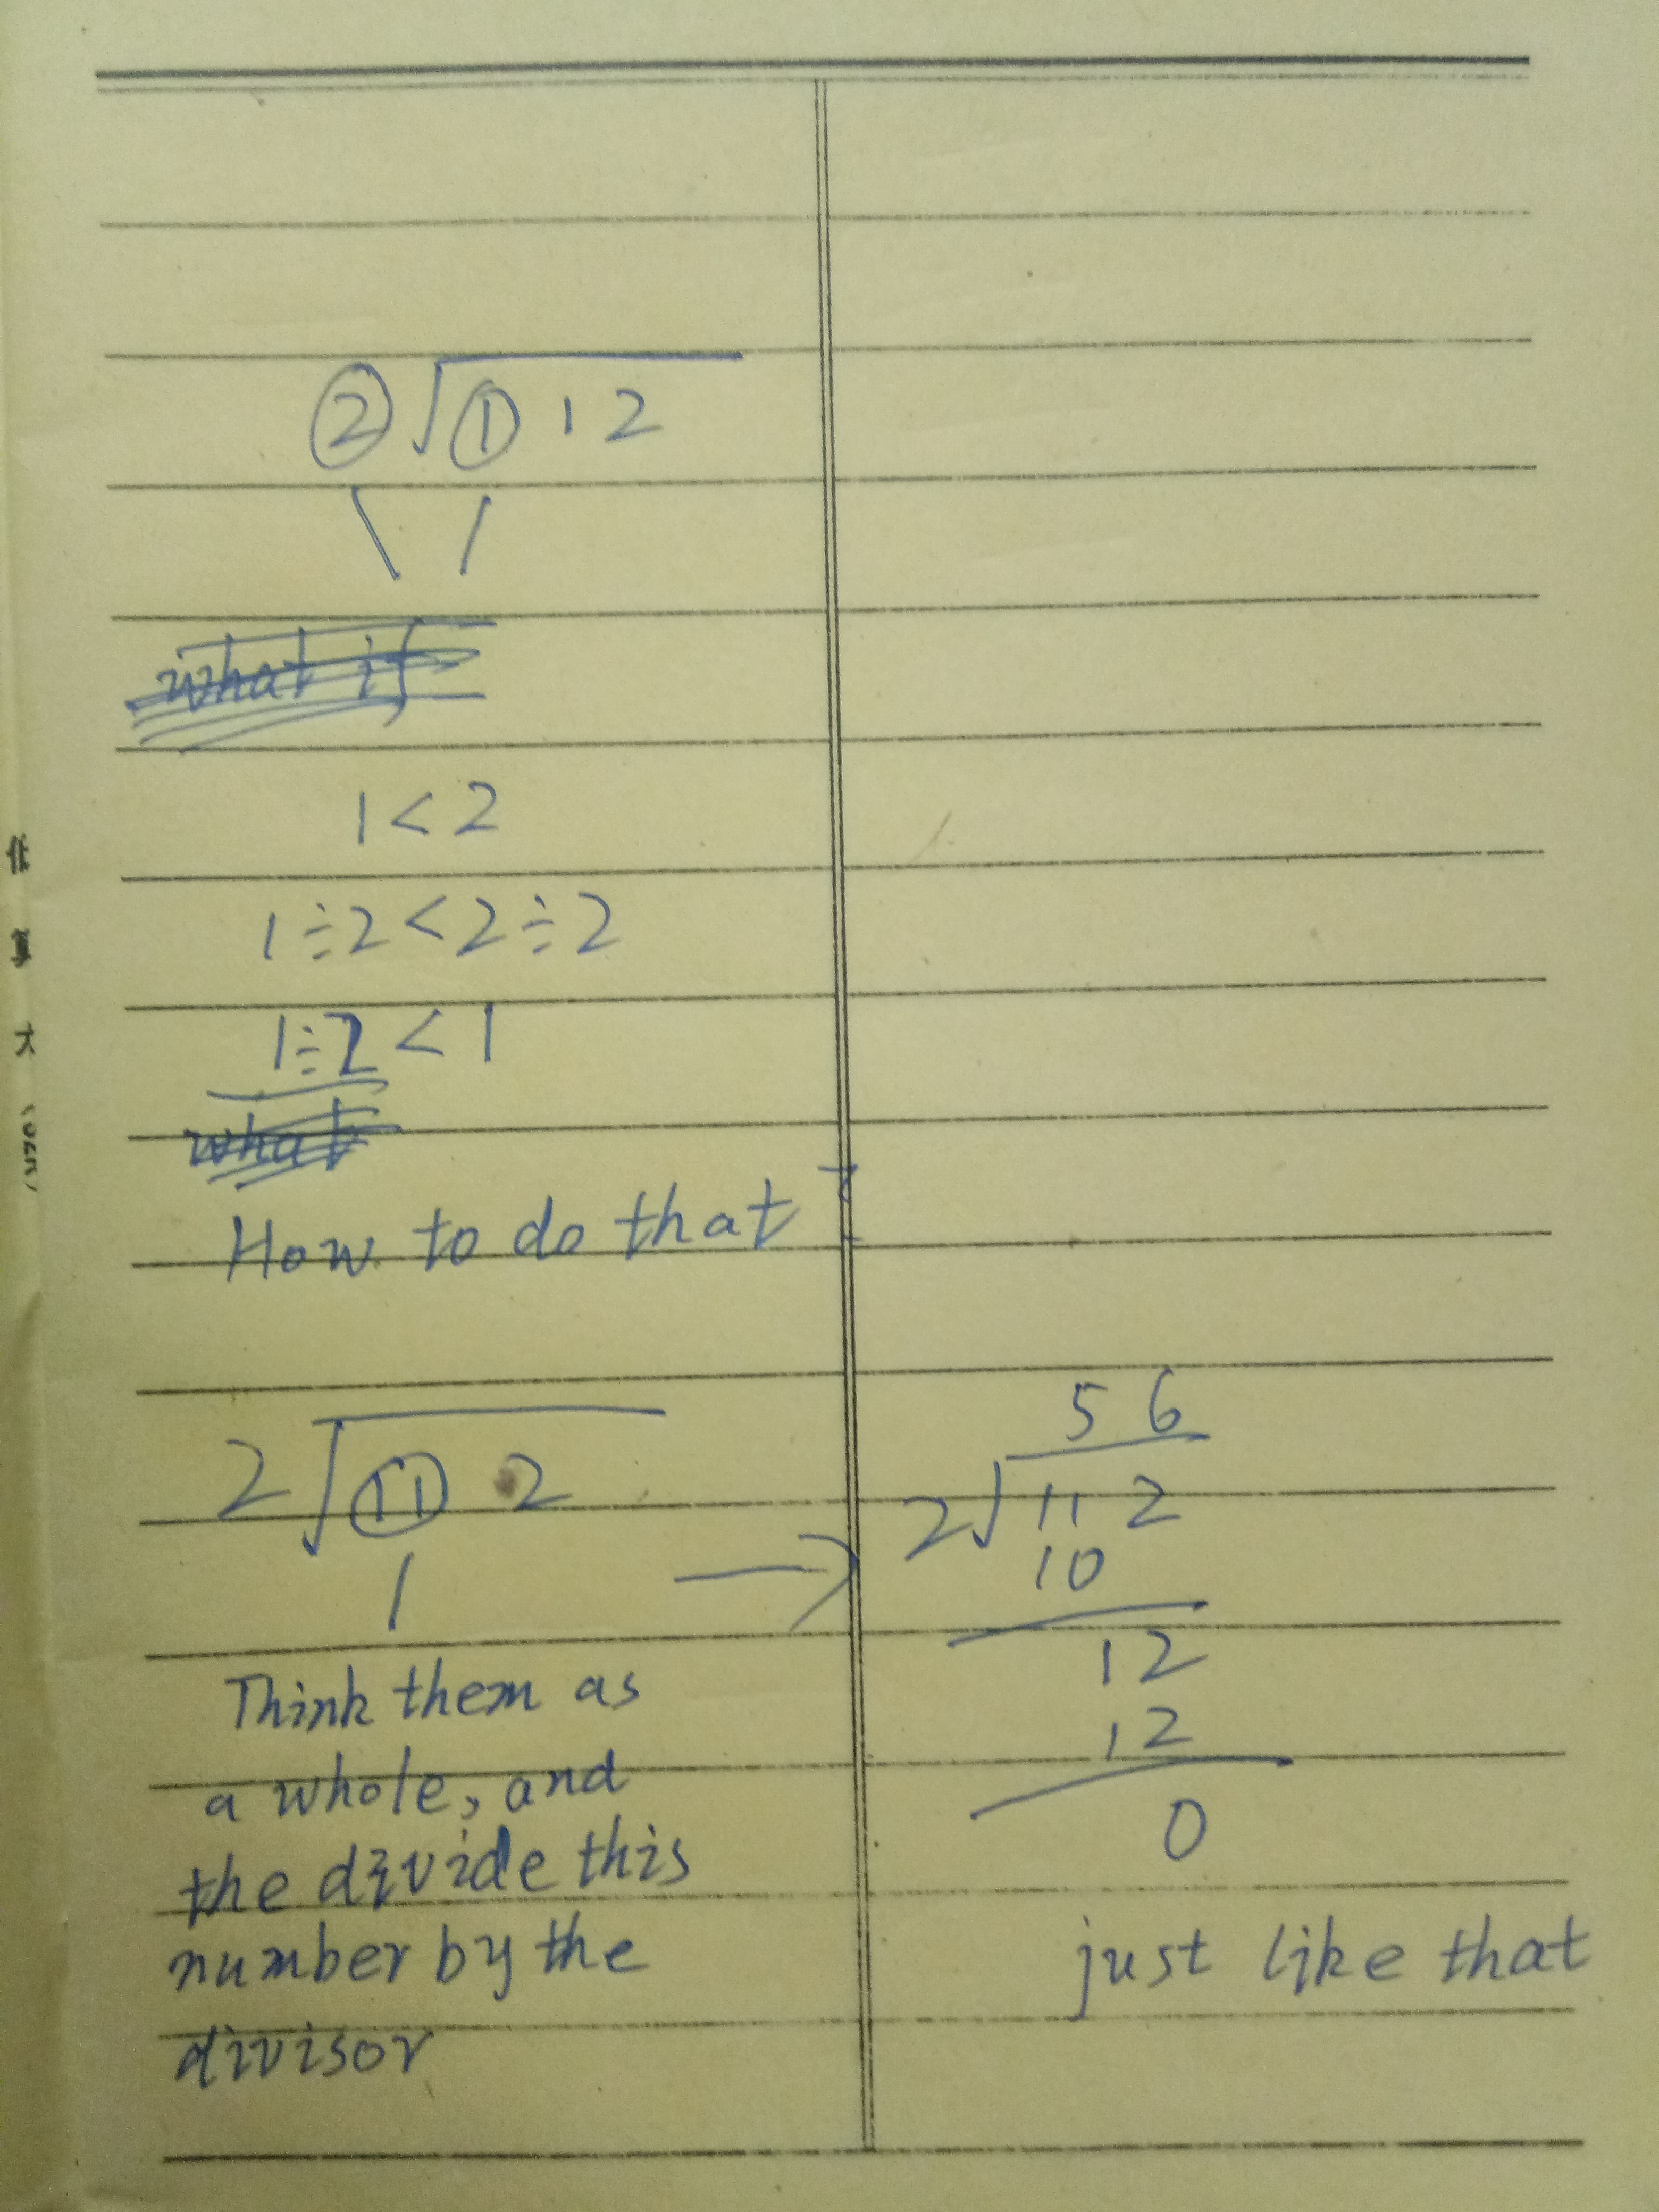 2 1 1 2
what if
1 < 2
1 ÷ 2 < 2 ÷ 2
1 ÷ 2 < 1
what
How to do that ?
2 11 2
Think them as
a whole, and
the divide this
number by the
divisor
5 6
2 11 2
10
12
12
0
just like that